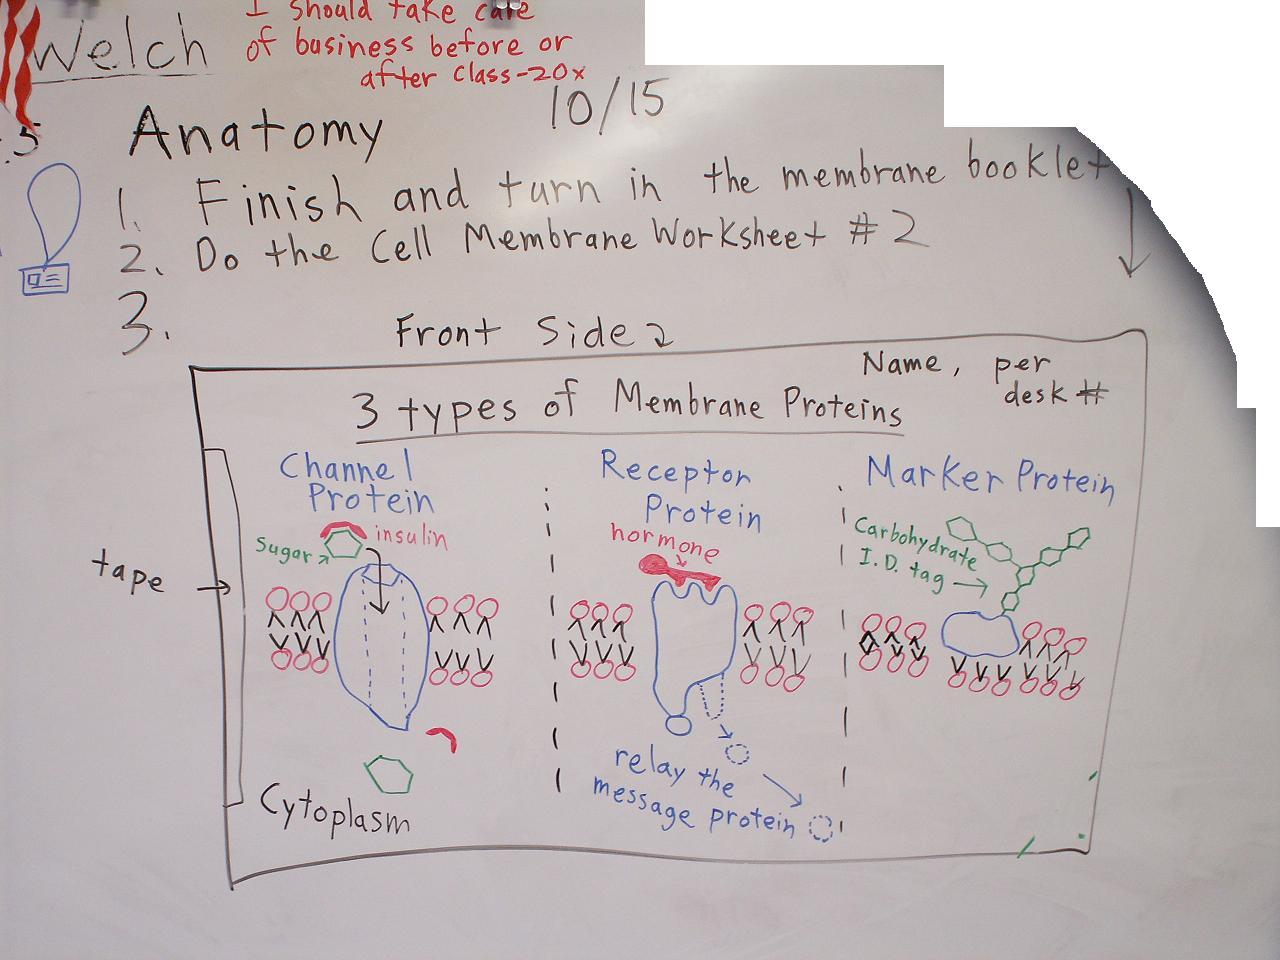 Welch
I should take care
of business before or
after class-20x
10/15
.5
Anatomy
1. Finish and turn in the membrane booklet
2. Do the Cell Membrane Worksheet #2
3.
Front Side
Name, per
desk #
3 types of Membrane Proteins
Channel
Protein
Receptor
Protein
Marker Protein
insulin
Sugar
hormone
Carbohydrate
I.D. tag
tape
relay the
message protein
Cytoplasm